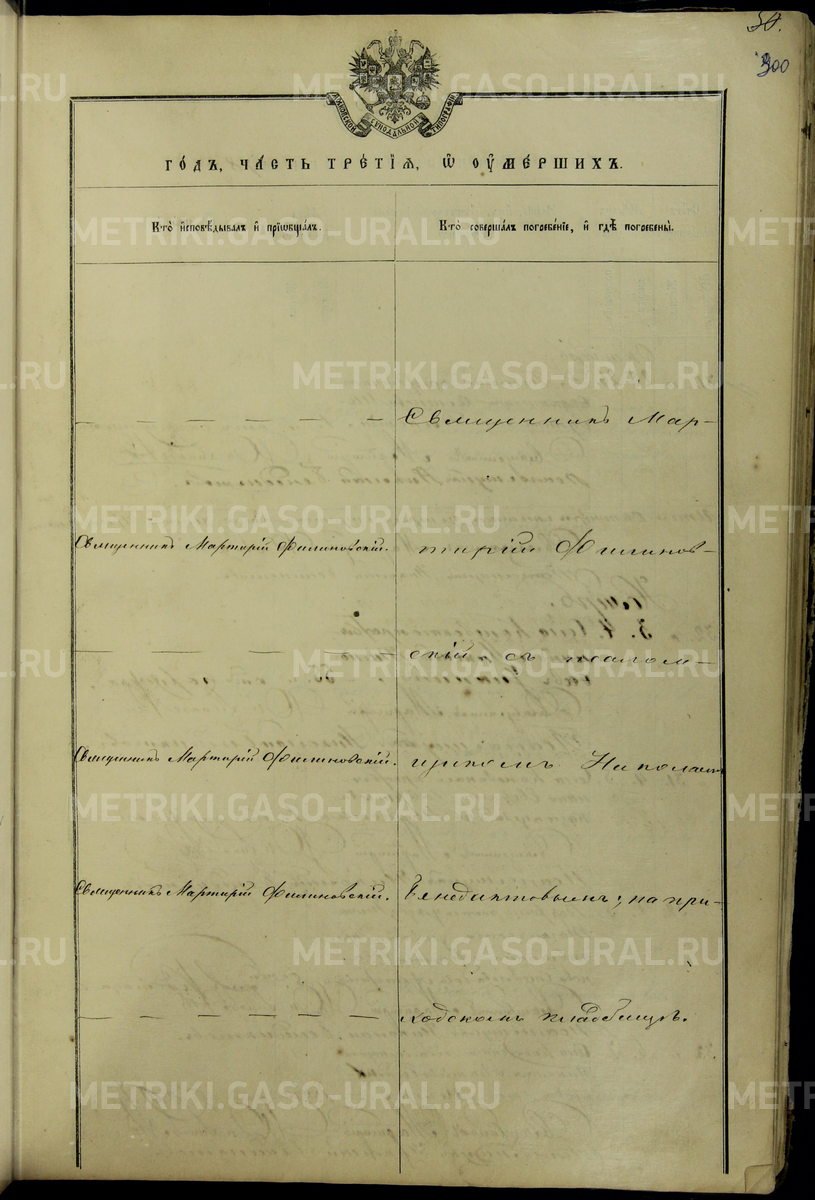 50.
300
МОСКОВСКОЙ СѴНОДАЛЬНОЙ ТИПОГРАФІИ
ГОДЪ, ЧАСТЬ ТРЕТІЯ, Ѽ ОУМЕРШИХЪ.
Кто исповѣдывалъ и пріѡбщалъ.
Кто совершалъ погребеніе, и гдѣ погребены.
Священникъ Мар-
Священникъ Мартирій Филиновскій.
тирій Филинов-
скій съ псалом-
Священникъ Мартирій Филиновскій.
щикомъ Николаемъ
Священникъ Мартирій Филиновскій.
Бенедиктовымъ; на при-
ходскомъ кладбищѣ.
METRIKI.GASO-URAL.RU